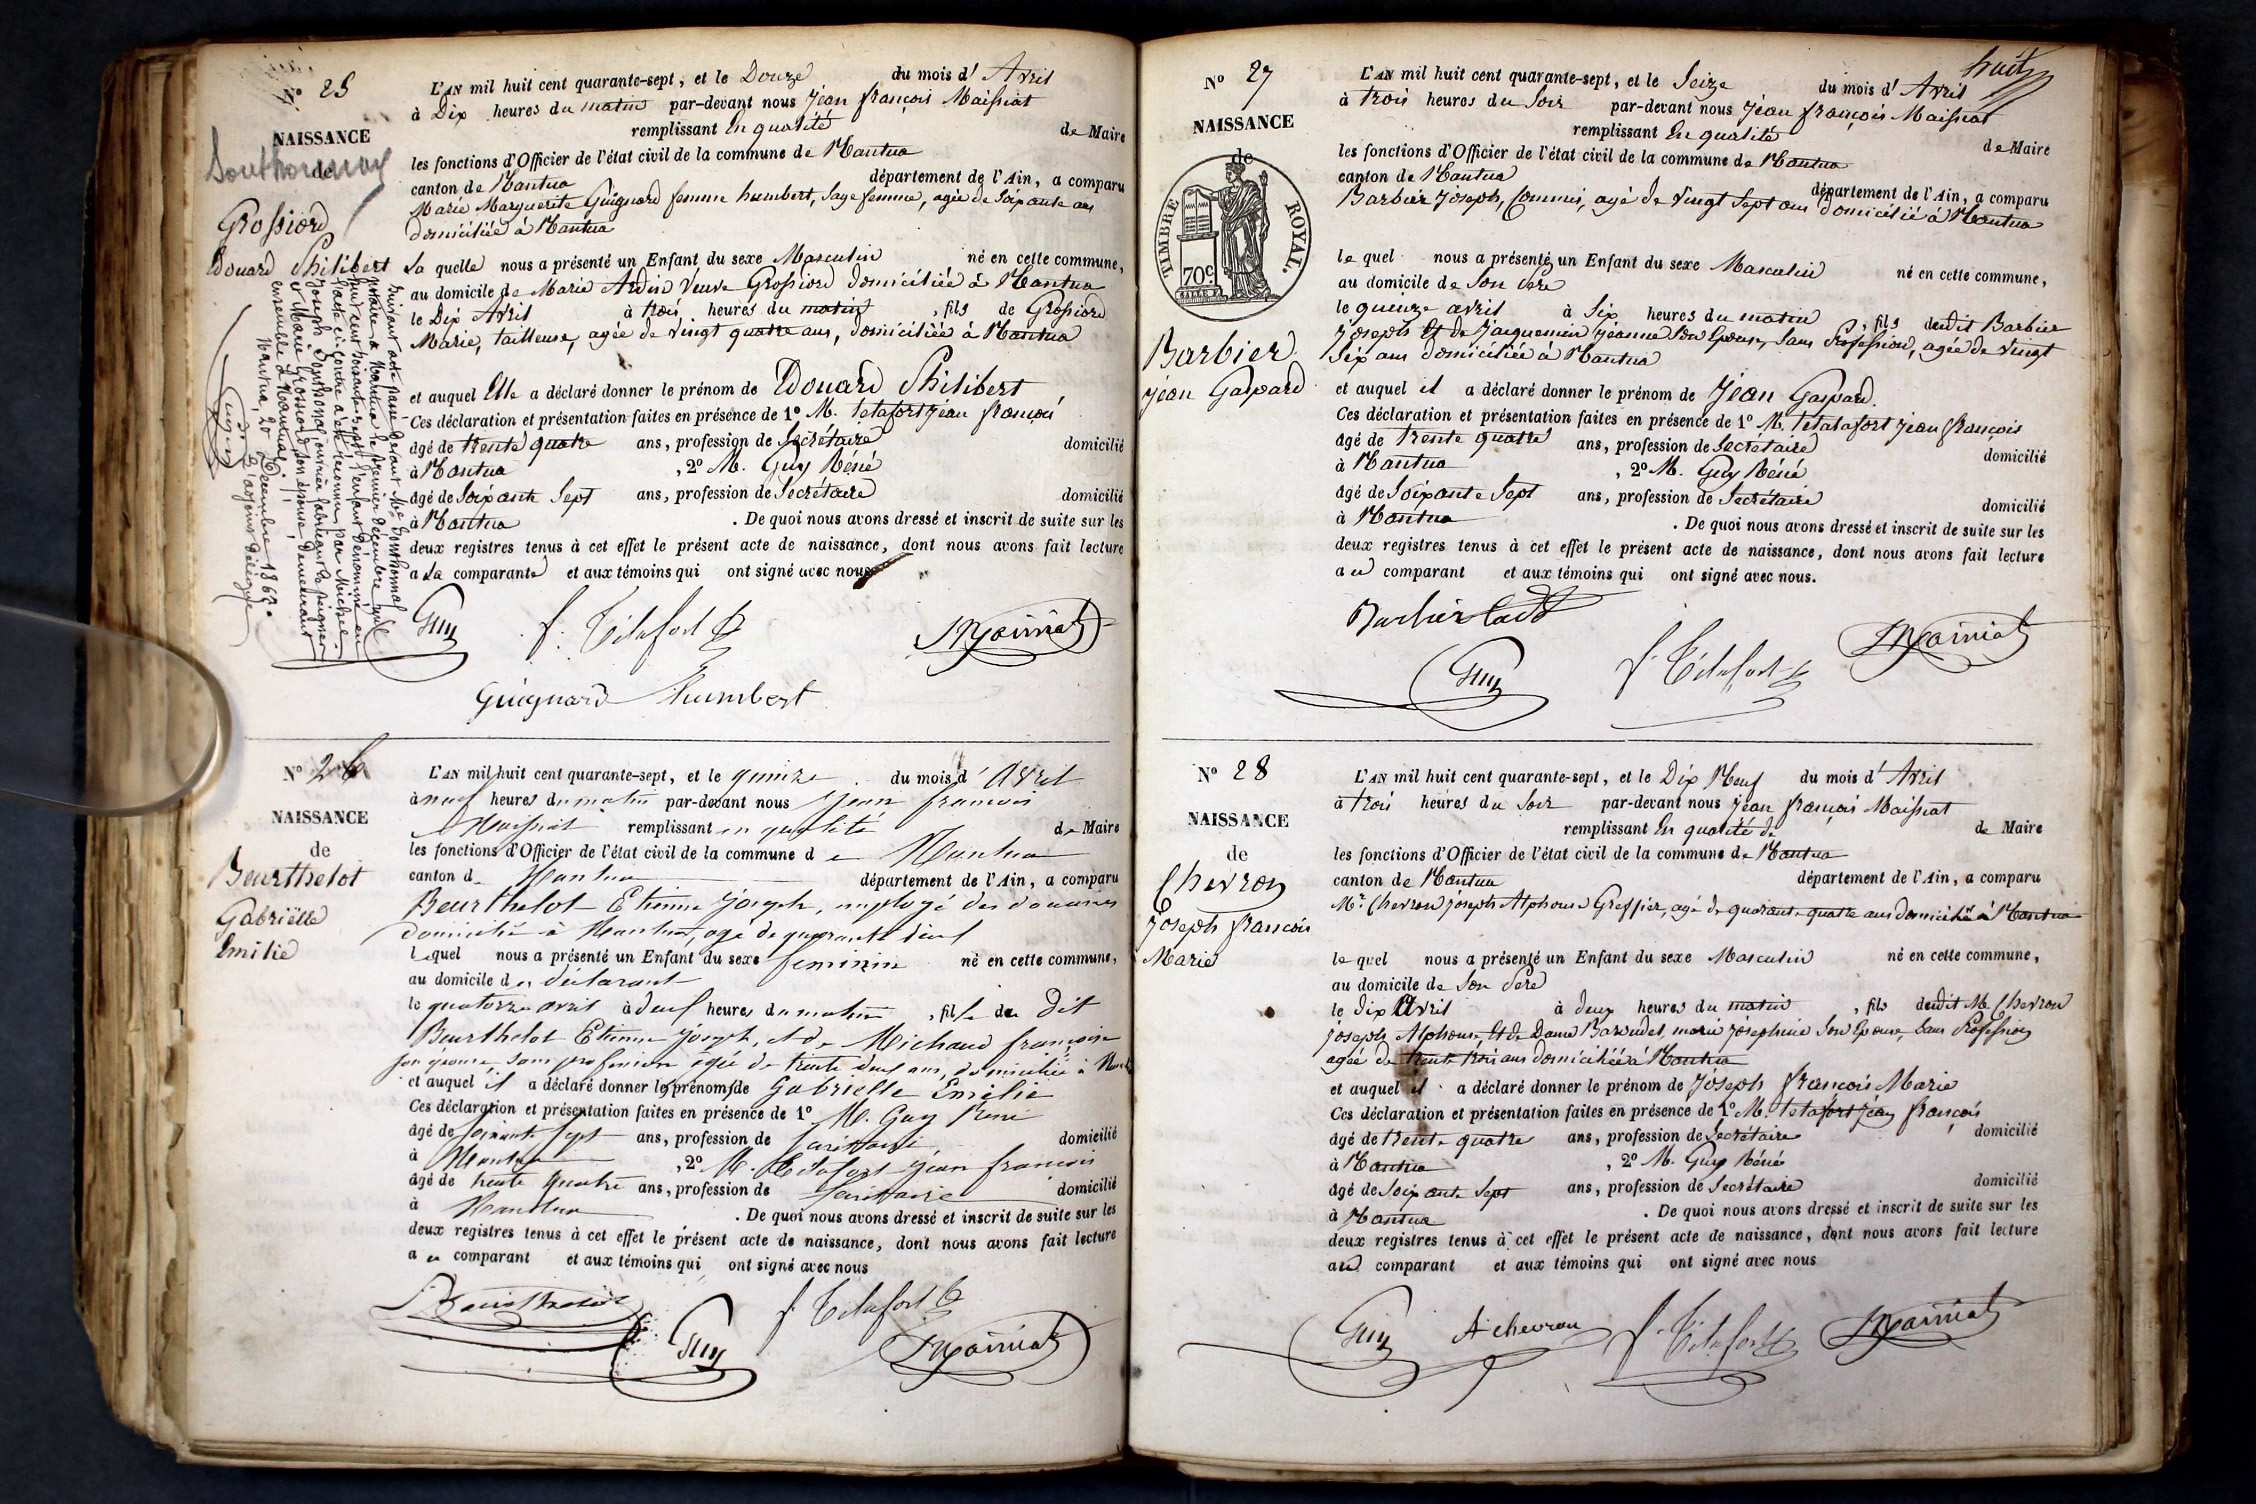 N° 25
NAISSANCE
de
Southonnax
Grossiord
Edouard Philibert
Suivant acte passé devant Me Southonnax
notaire à Nantua le premier décembre mil
huit cent soixante sept, l'enfant dénommé en
l'acte ci-contre a été reconnu par Michel
Joseph Southonnax, ouvrier fabricant de peignes
et Marie Grossiord son épouse demeurant
ensemble à Nantua.
Nantua, 20 Décembre 1867.
L'AN mil huit cent quarante-sept, et le Douze du mois d' Avril
à Dix heures du matin par-devant nous Jean françois Maissiat
remplissant En qualité de Maire
les fonctions d'Officier de l'état civil de la commune de Nantua
canton de Nantua département de l'Ain, a comparu
Marie Marguerite Guignard femme humbert, Sage femme, agée de Soixante ans
domiciliée à Nantua
la quelle nous a présenté un Enfant du sexe Masculin né en cette commune,
au domicile de Marie Ardin Veuve Grossiord domiciliée à Nantua
le Dix Avril à trois heures du matin, fils de Grossiord
Marie, tailleuse, agée de vingt quatre ans, domiciliée à Nantua
et auquel Elle a déclaré donner le prénom de Edouard Philibert
Ces déclaration et présentation faites en présence de 1° M. Tetafort jean françois
âgé de trente quatre ans, profession de Secrétaire domicilié
à Nantua, 2° M. Guy Réné
âgé de Soixante Sept ans, profession de Secrétaire domicilié
à Nantua. De quoi nous avons dressé et inscrit de suite sur les
deux registres tenus à cet effet le présent acte de naissance, dont nous avons fait lecture
a la comparante et aux témoins qui ont signé avec nous
Guy f. Tétafort Maissiat
Guignard humbert
N° 26
NAISSANCE
de
Beurthelot
Gabriëlle
Emilie
L'AN mil huit cent quarante-sept, et le quinze du mois d' Avril
à neuf heures du matin par-devant nous Jean francois
Maissiat remplissant en qualité de Maire
les fonctions d'Officier de l'état civil de la commune de Nantua
canton de Nantua département de l'Ain, a comparu
Beurthelot Etienne Joseph, employé des douanes
domicilié à Nantua, agé de quarante
lequel nous a présenté un Enfant du sexe feminin né en cette commune,
au domicile du déclarant
le quatorze avril à heures du matin, fille du Dit
Beurthelot Etienne Joseph, et de Michaud françoise
son epouse, sans profession agée de trente deux ans, domiciliée à
et auquel il a déclaré donner les prénoms de Gabrielle Emélie
Ces déclaration et présentation faites en présence de 1° M. Guy Réné
âgé de soixante sept ans, profession de Secrétaire domicilié
à Nantua, 2° M. Tétafort jean francois
âgé de trente quatre ans, profession de Secrétaire domicilié
à Nantua. De quoi nous avons dressé et inscrit de suite sur les
deux registres tenus à cet effet le présent acte de naissance, dont nous avons fait lecture
a u comparant et aux témoins qui ont signé avec nous
Beurthelot Guy f. Tétafort Maissiat
huit
N° 27
NAISSANCE
de
TIMBRE ROYAL.
70c.
Barbier
jean Gaspard
L'AN mil huit cent quarante-sept, et le Seize du mois d' Avril
à trois heures du Soir par-devant nous Jean françois Maissiat
remplissant En qualité de Maire
les fonctions d'Officier de l'état civil de la commune de Nantua
canton de Nantua département de l'Ain, a comparu
Barbier Joseph, Commis, agé de Vingt Sept ans domicilié à Nantua
le quel nous a présenté un Enfant du sexe Masculin né en cette commune,
au domicile de Son Père
le quinze avril à Six heures du matin, fils dudit Barbier
Joseph Et de Jacquemin Jeanne Son Epouse, Sans Profession, agée de Vingt
Six ans domiciliée à Nantua
et auquel il a déclaré donner le prénom de Jean Gaspard.
Ces déclaration et présentation faites en présence de 1° M. Tétatafort Jean françois
âgé de trente quatre ans, profession de Secrétaire domicilié
à Nantua, 2° M. Guy Réné
âgé de Soixante Sept ans, profession de Secrétaire domicilié
à Nantua. De quoi nous avons dressé et inscrit de suite sur les
deux registres tenus à cet effet le présent acte de naissance, dont nous avons fait lecture
a u comparant et aux témoins qui ont signé avec nous.
Barbier Cadt
Guy f. Tétafort Maissiat
N° 28
NAISSANCE
de
Chevron
Joseph françois
Marie
L'AN mil huit cent quarante-sept, et le Dix Neuf du mois d' Avril
à trois heures du Soir par-devant nous Jean françois Maissiat
remplissant En qualité de de Maire
les fonctions d'Officier de l'état civil de la commune de Nantua
canton de Nantua département de l'Ain, a comparu
Mr. Chevron Joseph Alphonse Greffier, agé de quarante quatre ans domicilié à Nantua
le quel nous a présenté un Enfant du sexe Masculin né en cette commune,
au domicile de Son Père
le Dix Avril à deux heures du matin, fils dudit M. Chevron
Joseph Alphonse, Et de Dame Baraudet marie josephine Son Epouse, Sans Profession
agée de trente trois ans domiciliée à Nantua
et auquel il a déclaré donner le prénom de Joseph françois Marie
Ces déclaration et présentation faites en présence de 1° M. Tetafort jean françois
âgé de trente quatre ans, profession de Secrétaire domicilié
à Nantua, 2° M. Guy Réné
âgé de Soixante Sept ans, profession de Secrétaire domicilié
à Nantua. De quoi nous avons dressé et inscrit de suite sur les
deux registres tenus à cet effet le présent acte de naissance, dont nous avons fait lecture
au comparant et aux témoins qui ont signé avec nous
Guy A chevron f. Tétafort Maissiat